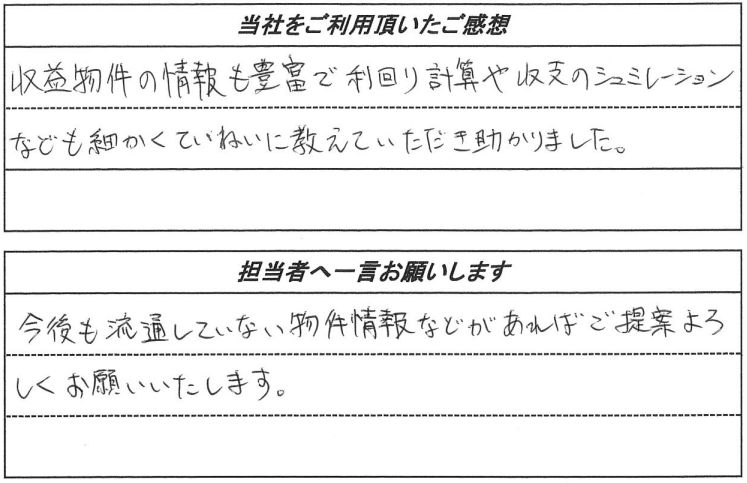 当社をご利用頂いたご感想
収益物件の情報も豊富で利回り計算や収支のシュミレーション
なども細かくていねいに教えていただき助かりました。
担当者へ一言お願いします
今後も流通していない物件情報などがあればご提案よろ
しくお願いいたします。